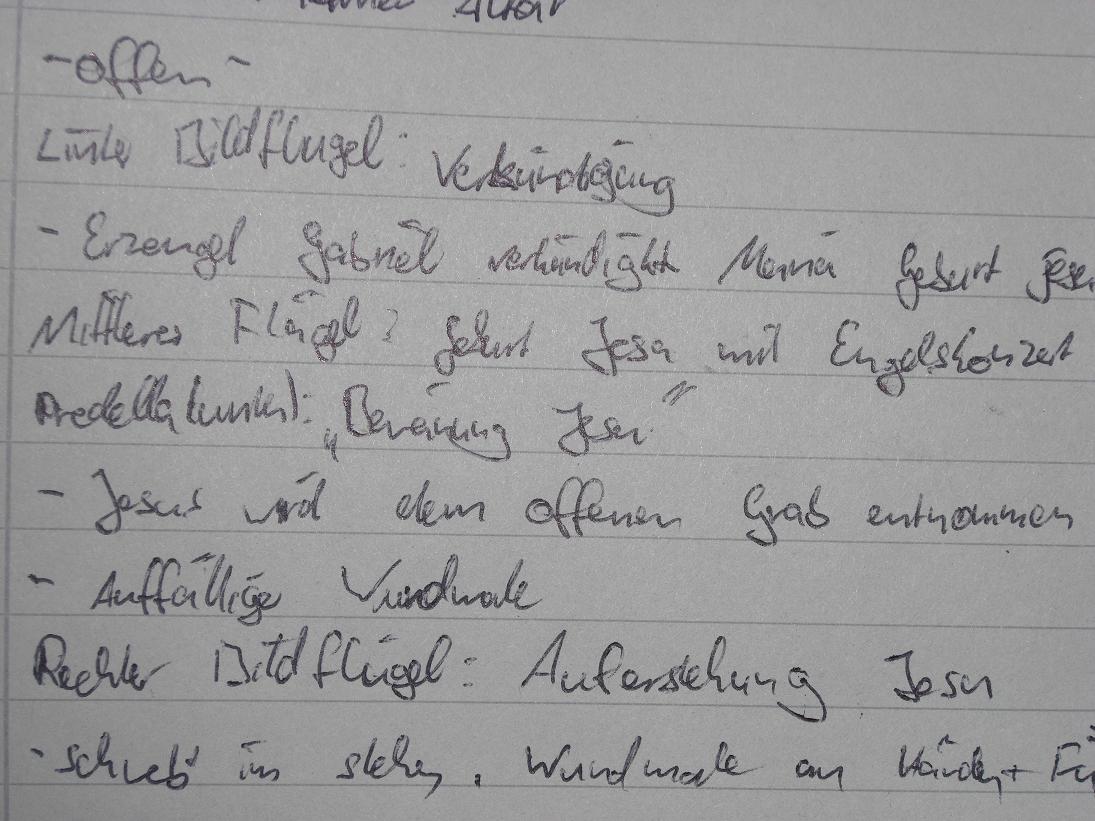 Altar
-offen-
Linker Bildflügel: Verkündigung
- Erzengel Gabriel verkündigt Maria Geburt Jesu
Mittleres Flügel: Geburt Jesu mit Engelskonzert
Predella (unten): „ Jesu"
- Jesus wird dem offenen Grab entnommen
- Auffällige Wundmale
Rechter Bildflügel: Auferstehung Jesu
- schwebt im stehen, Wundmale an Händen +